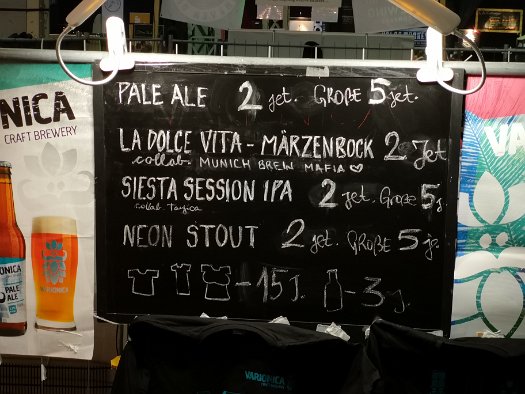 NICA
CRAFT BREWERY
PALE ALE 2 jet. GROßE 5 jet.
LA DOLCE VITA - MÄRZENBOCK 2 Jet
collab. MUNICH BREW MAFIA ♡
SIESTA SESSION IPA 2 jet. GROßE 5 j.
NEON STOUT 2 jet. GROßE 5 je.
-15 J. -3 J.
PALE
ALE
VARIONICA
VARIONICA
VA